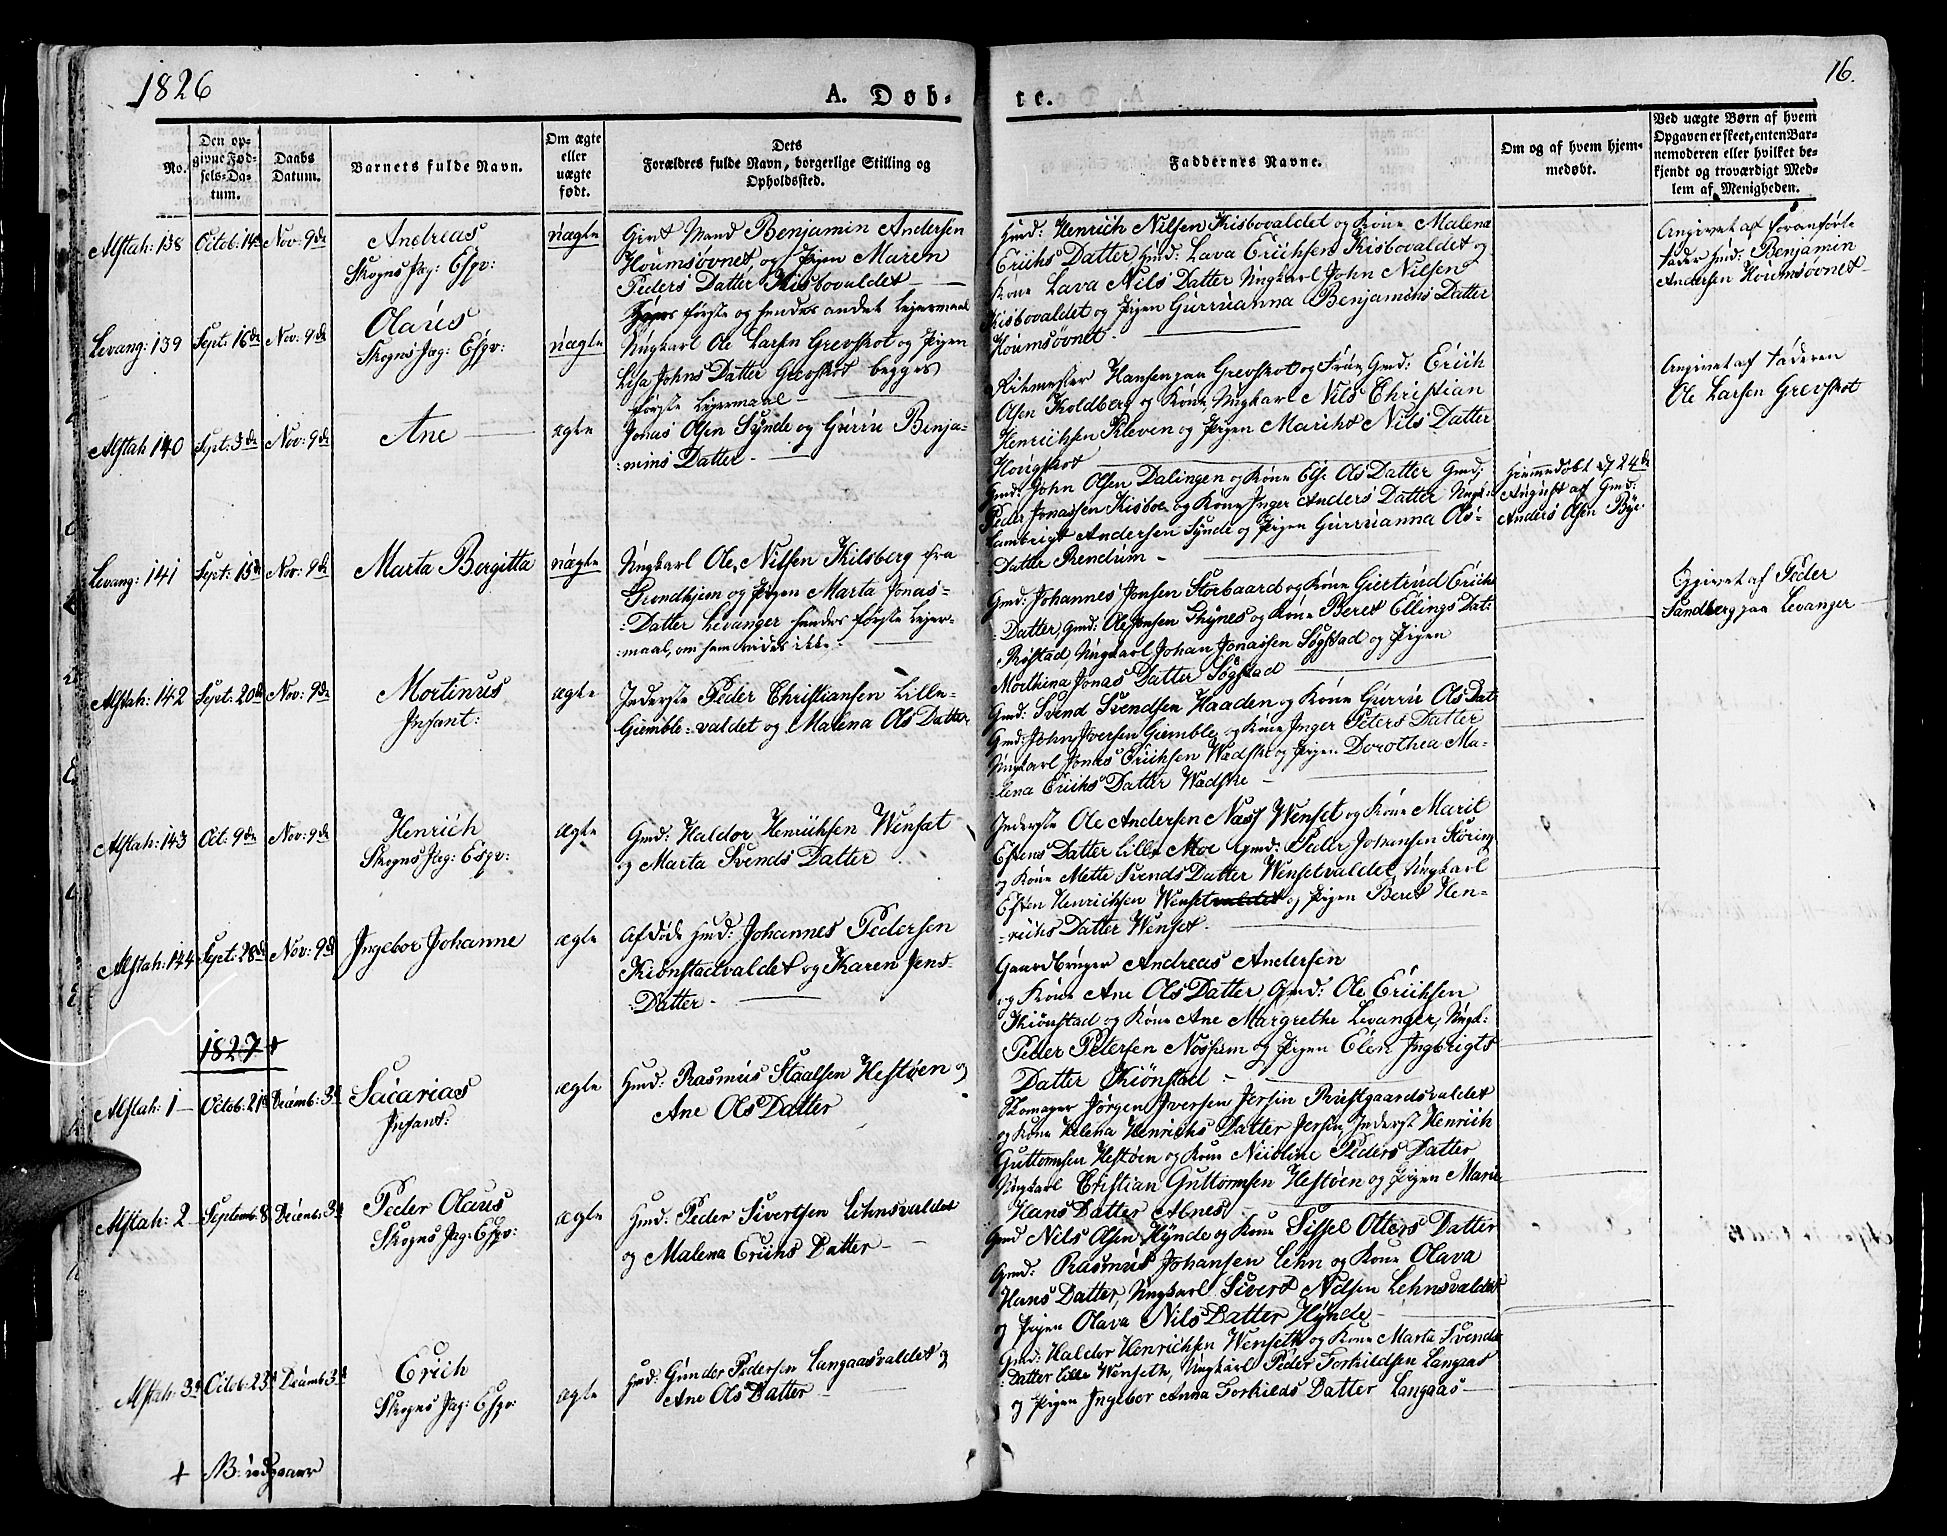 1826
A. Døb-
te.
16.
No.
Den op-
givne Fød-
sels-Da-
tum.
Daabs
Datum.
Barnets fulde Navn.
Om ægte
eller
uægte
født.
Dets
Forældres fulde Navn, borgerlige Stilling og
Opholdssted.
Faddernes Navne.
Om og af hvem hjem-
medøbt.
Ved uægte Børn af hvem
Opgaven er skeet, enten Bar-
nemoderen eller hvilket be-
kjendt og troværdigt Med-
lem af Menigheden.
Alstah: 138 Octob: 14de Nov: 9de
Andreas
Skogns Jag: Esqv:
uægte
Givt Mand Benjamin Andersen
Houmsövnet og Pigen Maren
Peders Datter Kisbovaldet
første og hendes andet Lejermaal
Hmd: Henrich Nilsen Kisbovaldet og Kone Malena
Erichs Datter, Hmd: Lava Erichsen Kisbovaldet og
Kone Lava Nils Datter Ungkarl John Nilsen
Kisbovaldet og Pigen Gurruanna Benjamins Datter
Houmsövnet.
Angivet af foranførte
Fader Hmd: Benjamin
Andersen Houmsövnet
Levang: 139 Sept: 16de Nov: 9de
Olaus
Skogns Jag: Esqv:
uægte
Ungkarl Ole Larsen Grevskot og Pigen
Lisa Johns Datter Grevskot begges
første Lejermaal
Ritmester Hansen paa Grevskot og Frue Gmd: Erich
Olsen Koldberg og Kone, Ungkarl Nils Christian
Henrichsen Kleven og Pigen Marihe Nils Datter
Hougskot
Angivet af Faderen
Ole Larsen Grevskot
Alstah 140 Sept: 3de Nov: 9de
Ane
ægte
Jonas Olsen Synde og Gurru Benja-
:mins Datter.
Gmd: John Olsen Dalingen og Kone Els: Ols Datter Gmd:
Peder Jonassen Kisboe og Kone Inger Anders Datter Ungk:
Lambrigt Andersen Synde og Pigen Gurruanna Ols-
Datter Rendum
Hiemmedøbt d 24de
August af Gmd:
Anders Olsen Bye
Levang: 141 Sept: 15de Nov: 9de
Marta Bergitta
uægte
Ungkarl Ole Nilsen Kilsberg fra
Trondhjem og Pigen Marta Jonas-
:Datter Levanger hendes første Lejer-
:maal, om hem vides ikke.
Gmd: Johannes Jonsen Storbaard og Kone Giertrud Erichs
:Datter, Gmd: Ole Jonsen Thynes og Kone Beret Ellings Dat:
Røstad, Ungkarl Johan Jonassen Søgstad og Pigen
Morthina Jonas Datter Søgstad
Opgivet af Peder
Sandberg paa Levanger
Alstah: 142 Sept: 20de Nov: 9de
Mortinus
Infant:
ægte
Inderste Peder Christiansen Lille-
Giemble:valdet og Malena Ols Datter
Gmd: Svend Svendsen Haaden og Kone Gurru Ols Dat
Gmd: John Iversen Giemble, og Kone Inger Peters Datter
Ungkarl Jonas Erichsen Wadske og Pigen Dorothea Ma-
:lena Erichs Datter Wadske
Alstah: 143 Oct: 9de Nov: 9de
Henrich
Skogns Jag: Esqv:
ægte
Gmd: Haldor Henrichsen Wenset
og Marta Svends Datter
Inderste Ole Andersen Nass Wenset og Kone Marit
Estens Datter Lille Moe Gmd: Peder Johansen Støring
og Kone Mette Svends Datter Wensetvaldet, Ungkarl
Esten Henrichsen Wensetvaldet og Pigen Beret Hen-
:richs Datter Wenset.
Alstah: 144 Sept: 28de Nov: 9de
Ingebor Johanne
ægte
Afdøde Hmd: Johannes Pedersen
Kiönstadvaldet og Karen Jens
:Datter
Gaardbruger Andreas Andersen
og Kone Ane Ols Datter Gmd: Ole Erichsen
Kiönstad og Kone Ane Margrethe Levanger, Ungk:
Peder Petersen Nossum og Pigen Elen Ingbrigts
Datter Kiönstad
1827 +
Alstah: 1 Octob: 21de Decemb: 3de
Sacarias
Infant:
ægte
Hmd: Rasmus Staalsen Hestøen og
Ane Ols Datter
Skomager Jørgen Iversen Jersin Rustgaardsvaldet
og Kone Helena Henrichs Datter Jersin, Inderst Henrich
Guttormsen Hestøen og Kone Nicoline Peders Datter
Ungkarl Cristian Guttormsen Hestøen og Pigen Marie
Hans Datter Alnes
Alstah: 2 Septemb: 8 Decemb: 3de
Peder Olaus
Skogns Jag: Esqv:
ægte
Hmd: Peder Sivertsen Lehnsvaldet
og Malena Erichs Datter
Gmd Nils Olsen Hynde og Kone Sissel Otters Datter
Gmd: Rasmus Johansen Lehn og Kone Olava
Hans Datter, Ungkarl Sivert Nilsen Lehnsvaldet
og Pigen Olava Nils Datter Hynde
Alstah: 3 Octob: 23de Decemb 3de
Erich
Skogns Jag: Esqv:
ægte
Hmd: Gunder Pedersen Langaasvaldet og
Ane Ols Datter
Gmd: Haldor Henrichsen Wenseth og Kone Marta Svends
:Datter Lille Wenseth, Ungkarl Peder Torkildsen Langaas
og Pigen Ingebor Anna Torkilds Datter Langaas
+ NB: udgaaer